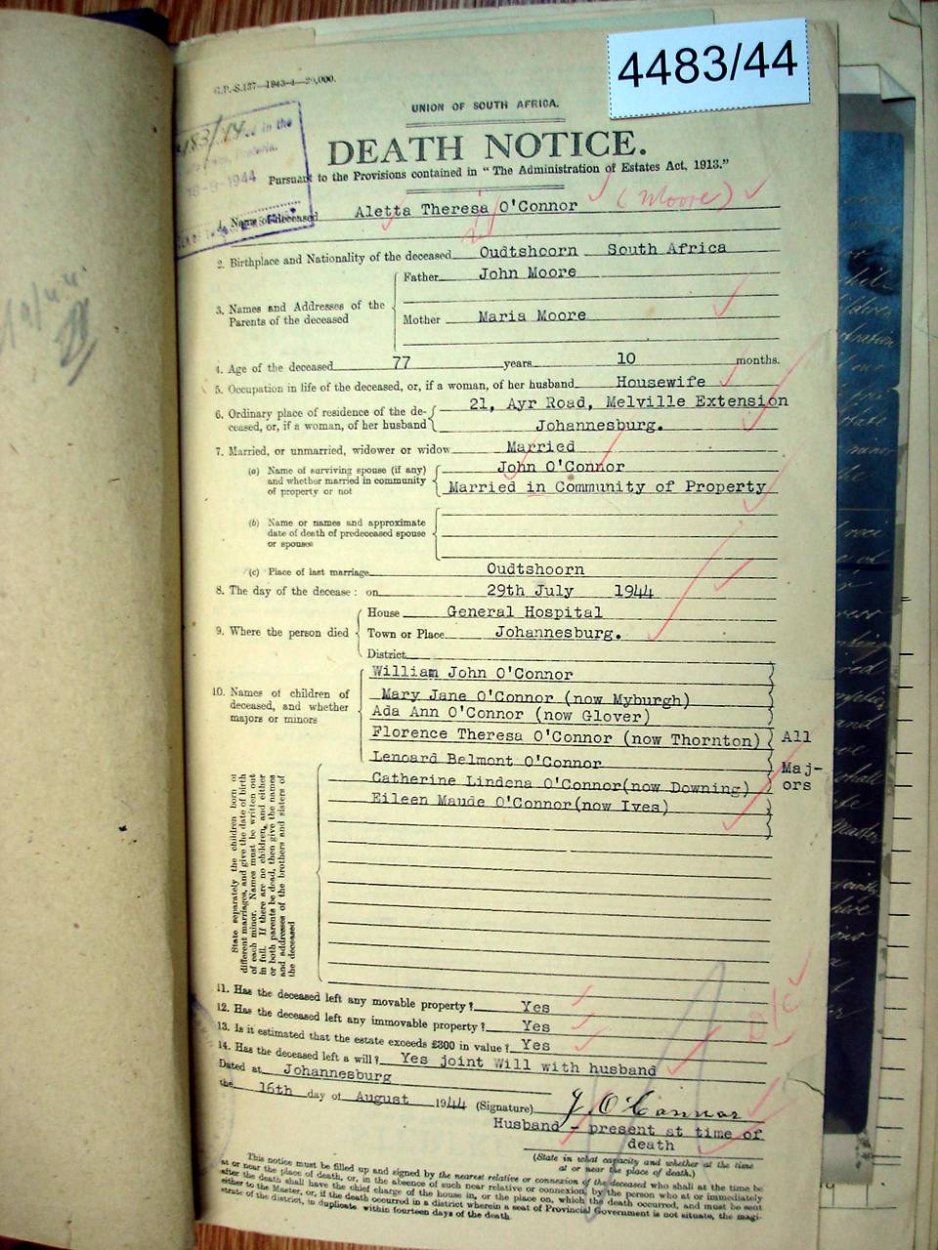 4483/44
G.P.-S.137—1943-4—20,000.
UNION OF SOUTH AFRICA.
DEATH NOTICE.
Pursuant to the Provisions contained in "The Administration of Estates Act, 1913."
1944
1. Name of deceased Aletta Theresa O'Connor (Moore)
2. Birthplace and Nationality of the deceased Oudtshoorn South Africa
3. Names and Addresses of the Parents of the deceased
Father John Moore
Mother Maria Moore
4. Age of the deceased 77 years 10 months.
5. Occupation in life of the deceased, or, if a woman, of her husband Housewife
6. Ordinary place of residence of the de- 21, Ayr Road, Melville Extension
ceased, or, if a woman, of her husband Johannesburg.
7. Married, or unmarried, widower or widow Married
(a) Name of surviving spouse (if any) John O'Connor
and whether married in community
of property or not Married in Community of Property
(b) Name or names and approximate
date of death of predeceased spouse
or spouses
(c) Place of last marriage Oudtshoorn
8. The day of the decease: on 29th July 1944
9. Where the person died
House General Hospital
Town or Place Johannesburg.
District
10. Names of children of
deceased, and whether
majors or minors
William John O'Connor
Mary Jane O'Connor (now Myburgh)
Ada Ann O'Connor (now Glover)
Florence Theresa O'Connor (now Thornton)
Lenoard Belmont O'Connor
Catherine Lindena O'Connor(now Downing)
Eileen Maude O'Connor(now Ives)
All
Maj-
ors
State separately the children born of
different marriages, and give the date of birth
of each minor. Names must be written out
in full. If there are no children, and either
or both parents be dead, then give the names
and addresses of the brothers and sisters of
the deceased
11. Has the deceased left any movable property? Yes
12. Has the deceased left any immovable property? Yes
13. Is it estimated that the estate exceeds £300 in value? Yes
14. Has the deceased left a will? Yes joint Will with husband
Dated at Johannesburg
the 16th day of August 1944 (Signature) J. O'Connor
Husband - present at time of
death
(State in what capacity and whether at the time
at or near the place of death.)
This notice must be filled up and signed by the nearest relative or connexion of the deceased who shall at the time be
at or near the place of death, or, in the absence of such near relative or connexion, by the person who at or immediately
after the death shall have the chief charge of the house in, or the place on, which the death occurred, and must be sent
either to the Master, or, if the death occurred in a district wherein a seat of Provincial Government is not situate, the magi-
strate of the district, in duplicate within fourteen days of the death.